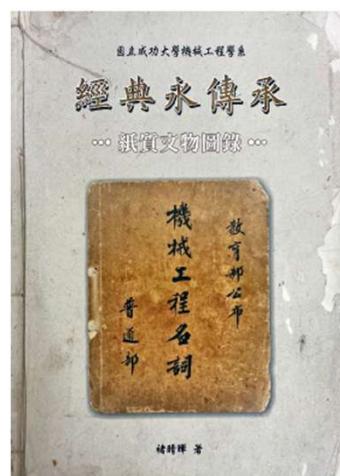 國立成功大學機械工程學系
經典永傳承
••• 紙質文物圖錄 •••
教育部公布
機械工程名詞
普通部
褚晴暉 著